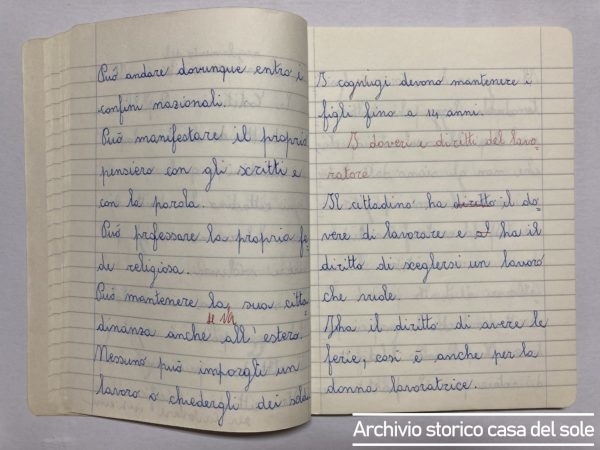 Può andare dovunque entro i
confini nazionali.
Può manifestare il proprio
pensiero con gli scritti e
con la parola.
Può professare la propria fe
de religiosa.
Può mantenere la sua citta
dinanza anche all'estero.
Nessuno può imporgli un
lavoro o chiedergli dei soldi
I cogniugi devono mantenere i
figli fino a 14 anni.
I doveri e diritti del lavo-
ratore
Il cittadino ha diritto il do-
vere di lavorare e al ha il
diritto di sceglersi un lavoro
che vuole.
Iha il diritto di avere le
ferie, così è anche per la
donna lavoratrice.
Archivio storico casa del sole